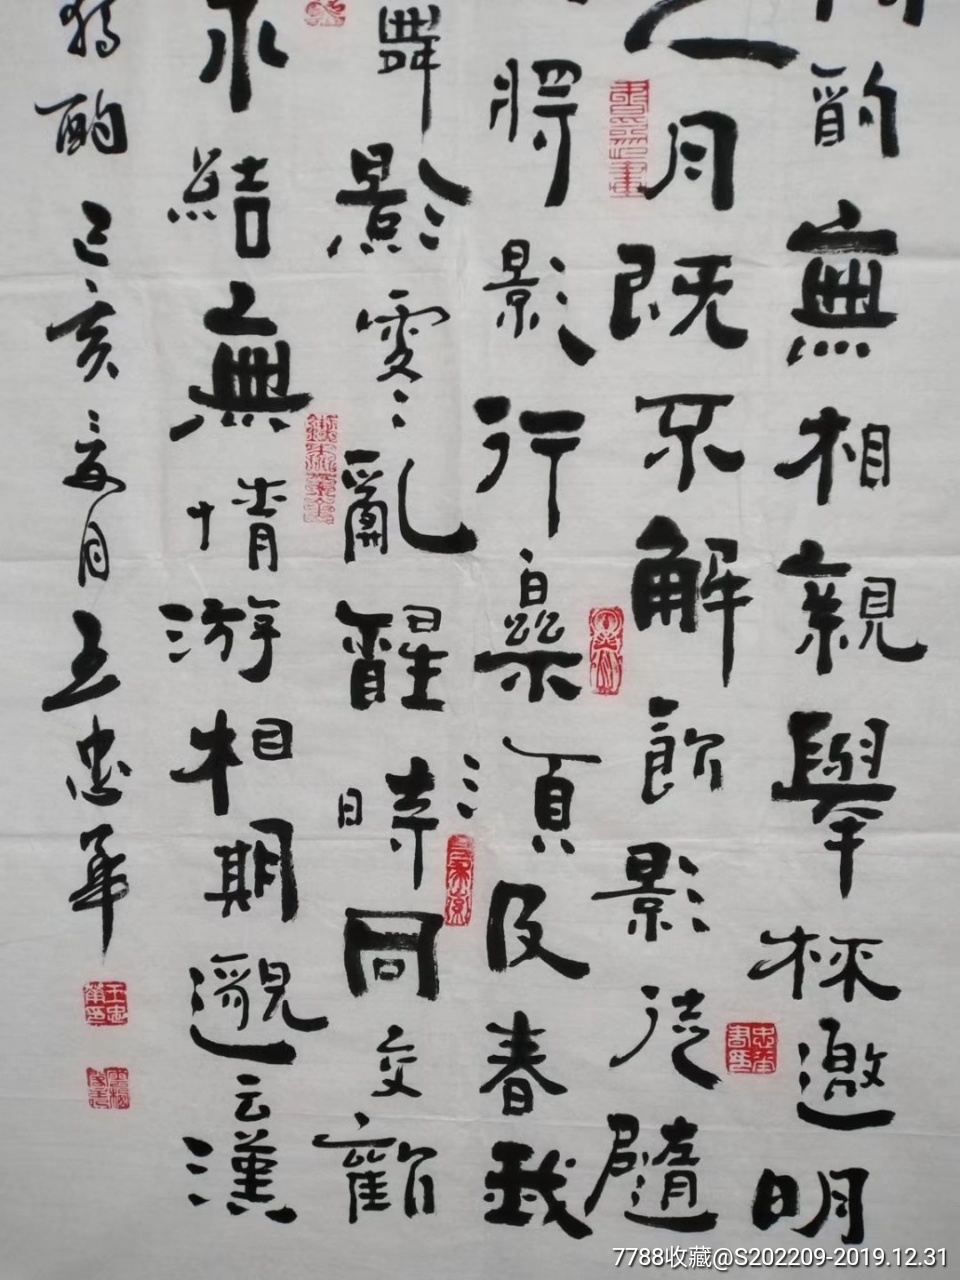 酌無相親舉杯邀明
人月既不解飲影徒隨
將影行樂須及春我
舞影零亂醒時同交歡
永結無情游相期邈云漢
獨酌 己亥夏月 王忠華
忠華書印
王忠華印
7788收藏@S202209-2019.12.31